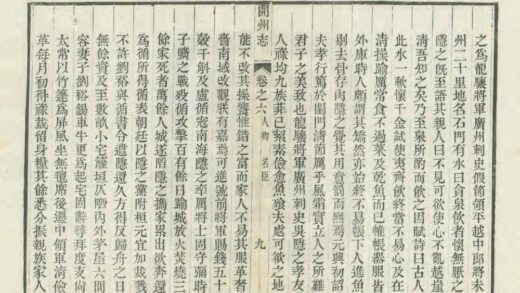 之爲龍驤將軍廣州刺史假節領平越中郎將未
州二十里地名石門有水曰貪泉飮者懷無厭之
隱之旣至語其親人曰不見可欲使心不亂越嶺
淸吾知之矣乃至泉所酌而飮之因賦詩曰古人
此水一歃懷千金試使夷齊飮終當不易心及在
淸操踰厲常食不過菜及乾魚而已帷帳器服皆
外庫時人頗謂其矯然亦始終不易帳下人進魚
剔去骨存肉隱之覺其用意罰而黜焉元興初詔
夫孝行篤於閨門淸節厲乎風霜實立人之所難
君子之美致也龍驤將軍廣州刺史吳隱之孝友
人祿均九族菲已絜素儉愈魚飱夫處可欲之地
開州志 卷之六 人物 名臣 九
能不改其操饗惟錯之富而家人不易其服革奢
嗇南域改觀朕有嘉焉可進號前將軍賜錢五十
穀千斛及盧循寇南海隱之率厲將士固守彌時
子曠之戰歿循攻擊百有餘日踰城放火焚燒三
餘家死者萬餘人城遂陷隱之攜家累出欲奔還
爲循所得循表朝廷以隱之黨附桓宜加裁戮
不許劉裕與循書令遣隱還久方得反歸舟之日
無餘貲及至數畝小宅籬垣仄陋內外茅屋六間
容妻子劉裕賜車牛更爲起宅固辭尋拜度支尚
太常以竹篷爲屏風坐無氈席後遷中領軍淸儉
革每月初得祿裁留身糧其餘悉分振親族家人